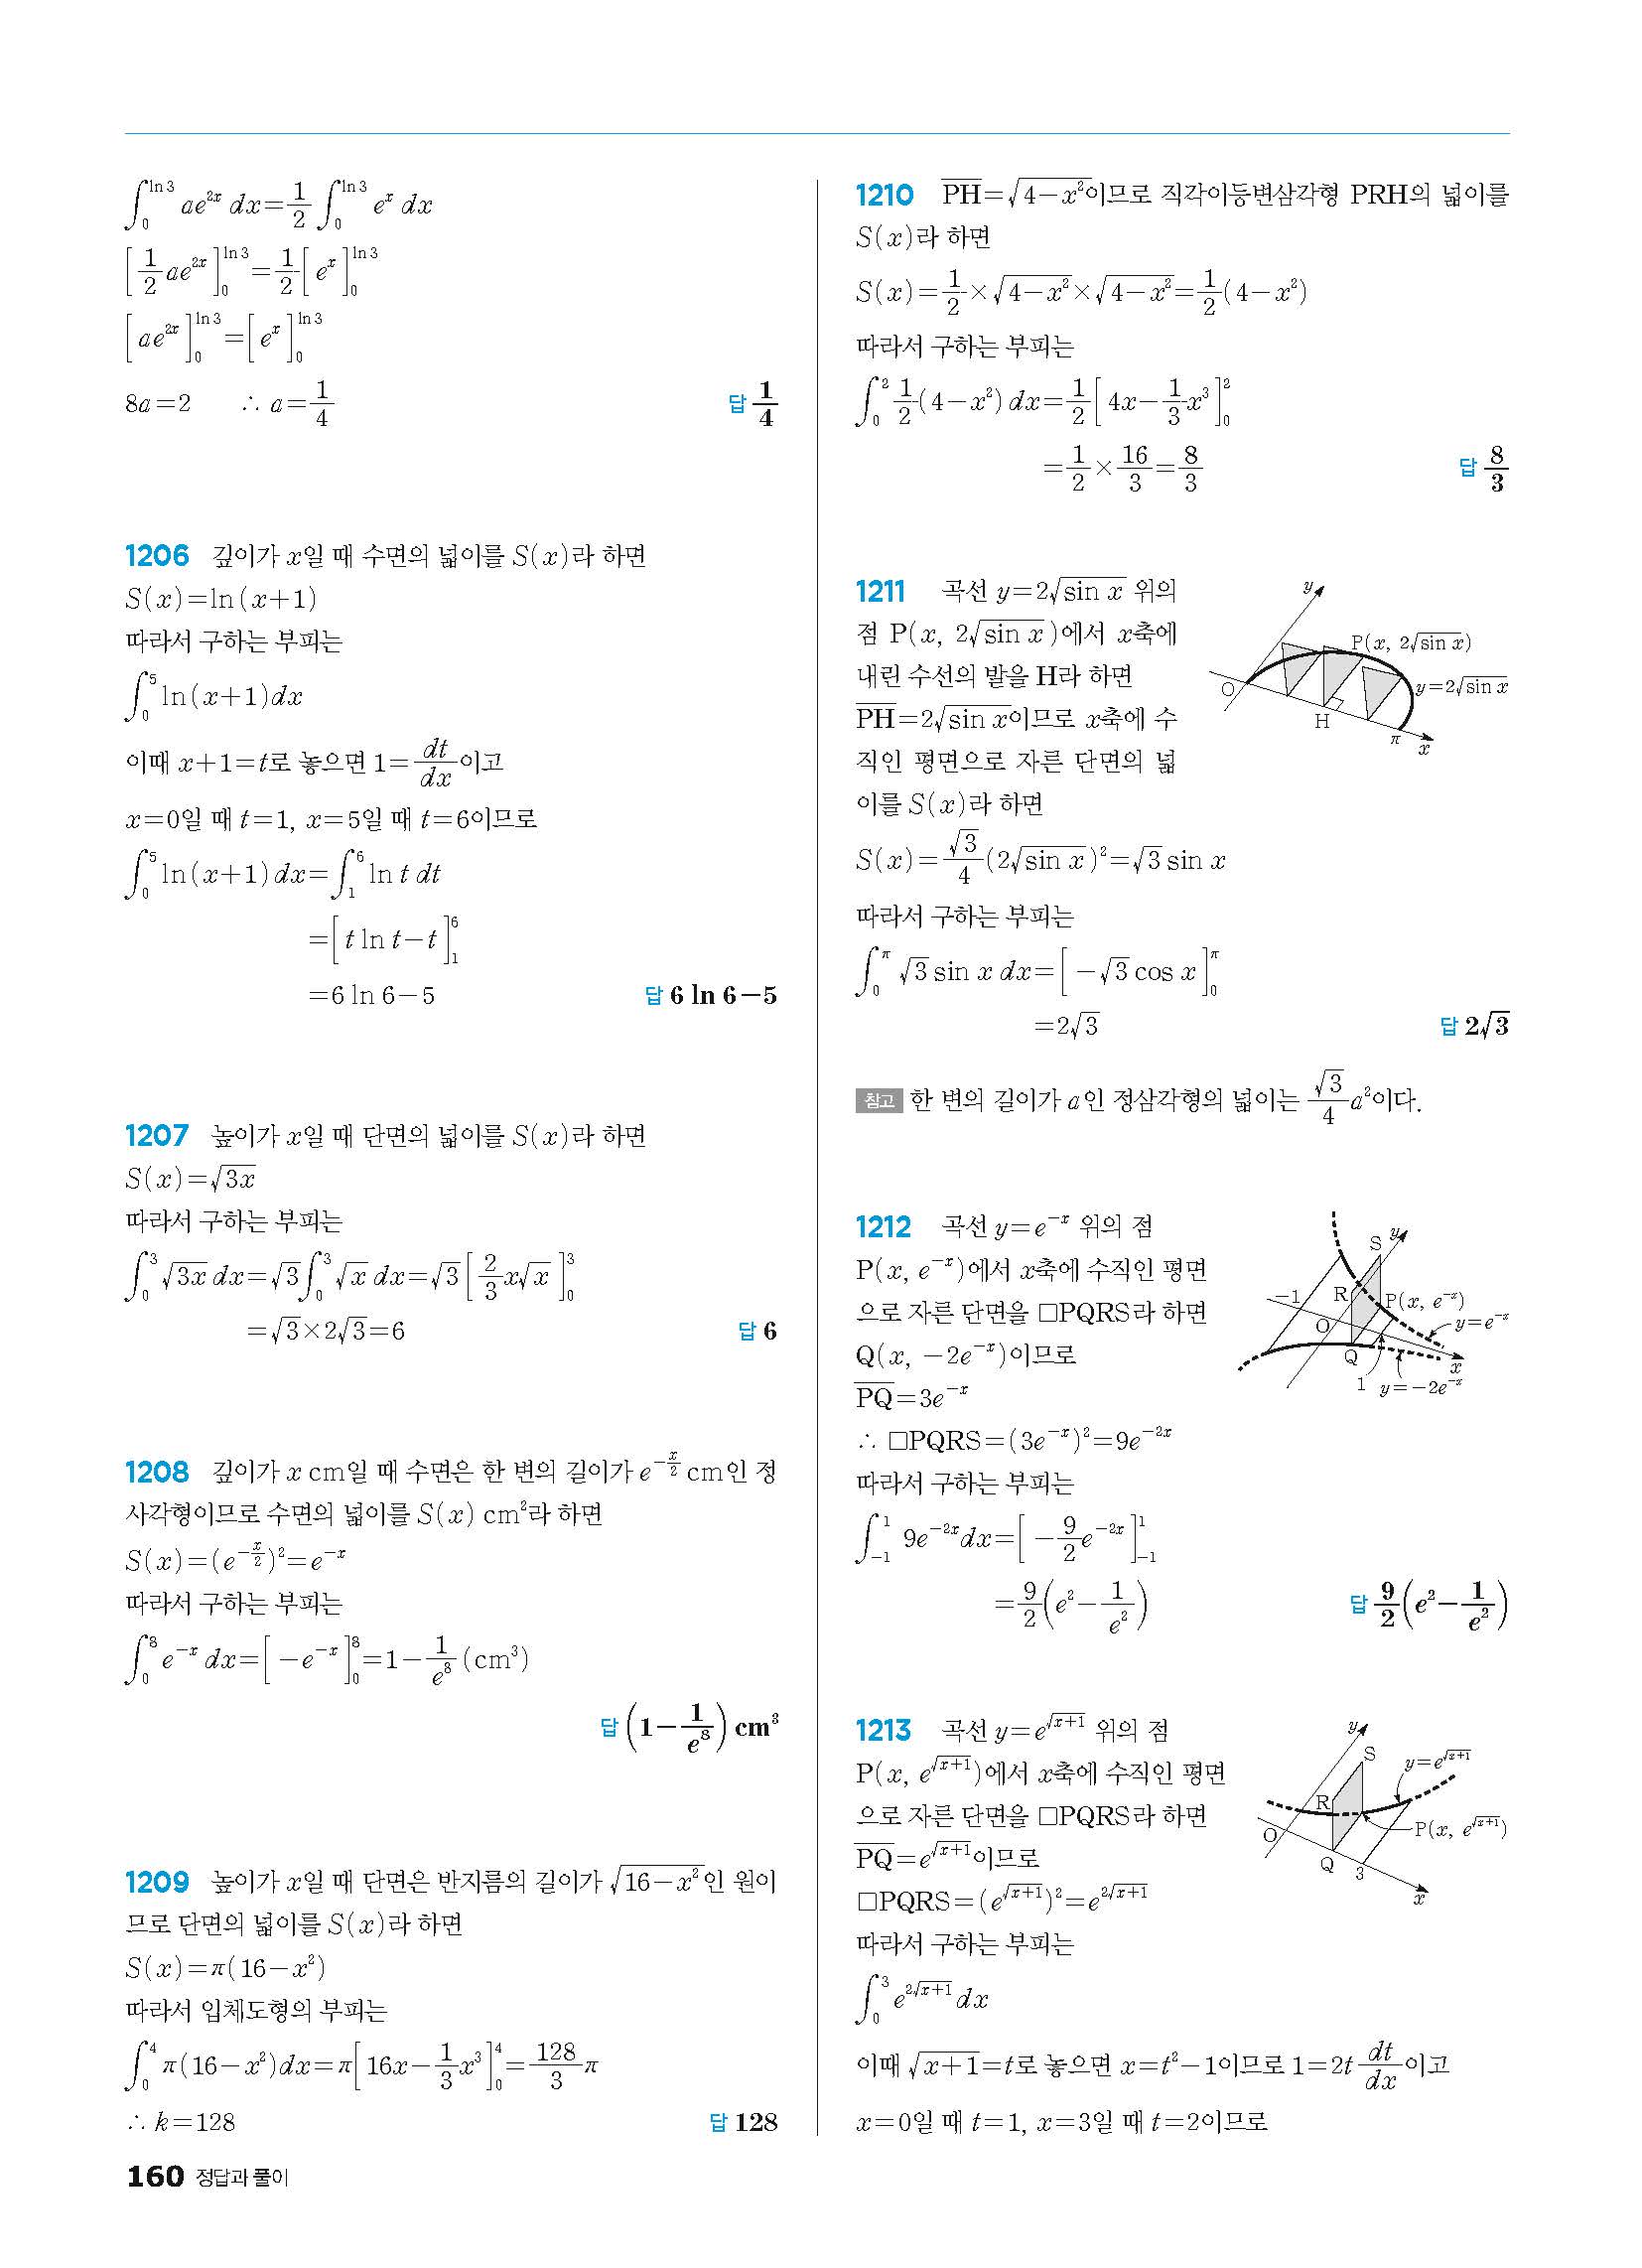 ∫₀^{ln 3} ae^{2x} dx = 1/2 ∫₀^{ln 3} e^x dx
[1/2 ae^{2x}]₀^{ln 3} = 1/2 [e^x]₀^{ln 3}
[ae^{2x}]₀^{ln 3} = [e^x]₀^{ln 3}
8a=2 ∴ a=1/4 답 1/4
1206 깊이가 x일 때 수면의 넓이를 S(x)라 하면
S(x)=ln(x+1)
따라서 구하는 부피는
∫₀^5 ln(x+1)dx
이때 x+1=t로 놓으면 1=dt/dx이고
x=0일 때 t=1, x=5일 때 t=6이므로
∫₀^5 ln(x+1)dx=∫₁^6 ln t dt
=[t ln t-t]₁^6
=6 ln 6-5 답 6 ln 6-5
1207 높이가 x일 때 단면의 넓이를 S(x)라 하면
S(x)=√(3x)
따라서 구하는 부피는
∫₀^3 √(3x) dx=√3∫₀^3 √x dx=√3[2/3 x√x]₀^3
=√3×2√3=6 답 6
1208 깊이가 x cm일 때 수면은 한 변의 길이가 e^{-x/2} cm인 정
사각형이므로 수면의 넓이를 S(x) cm²라 하면
S(x)=(e^{-x/2})²=e^{-x}
따라서 구하는 부피는
∫₀^8 e^{-x} dx=[-e^{-x}]₀^8=1-1/e^8 (cm³)
답 (1-1/e^8) cm³
1209 높이가 x일 때 단면은 반지름의 길이가 √(16-x²)인 원이
므로 단면의 넓이를 S(x)라 하면
S(x)=π(16-x²)
따라서 입체도형의 부피는
∫₀^4 π(16-x²)dx=π[16x-1/3 x³]₀^4=128/3 π
∴ k=128 답 128
160 정답과 풀이
1210 PH=√(4-x²)이므로 직각이등변삼각형 PRH의 넓이를
S(x)라 하면
S(x)=1/2×√(4-x²)×√(4-x²)=1/2(4-x²)
따라서 구하는 부피는
∫₀^2 1/2(4-x²)dx=1/2[4x-1/3 x³]₀^2
=1/2×16/3=8/3 답 8/3
1211 곡선 y=2√(sin x) 위의
점 P(x, 2√(sin x))에서 x축에
내린 수선의 발을 H라 하면
PH=2√(sin x)이므로 x축에 수
직인 평면으로 자른 단면의 넓
이를 S(x)라 하면
y
P(x, 2√(sin x))
O
y=2√(sin x)
H
π
x
S(x)=√3/4 (2√(sin x))²=√3 sin x
따라서 구하는 부피는
∫₀^π √3 sin x dx=[-√3 cos x]₀^π
=2√3 답 2√3
참고 한 변의 길이가 a인 정삼각형의 넓이는 √3/4 a²이다.
1212 곡선 y=e^{-x} 위의 점
P(x, e^{-x})에서 x축에 수직인 평면
으로 자른 단면을 □PQRS라 하면
Q(x, -2e^{-x})이므로
PQ=3e^{-x}
y
S
-1
R
P(x, e^{-x})
O
y=e^{-x}
Q
x
1
y=-2e^{-x}
∴ □PQRS=(3e^{-x})²=9e^{-2x}
따라서 구하는 부피는
∫₋₁^1 9e^{-2x}dx=[-9/2 e^{-2x}]₋₁^1
=9/2(e²-1/e²) 답 9/2(e²-1/e²)
1213 곡선 y=e^{√(x+1)} 위의 점
P(x, e^{√(x+1)})에서 x축에 수직인 평면
으로 자른 단면을 □PQRS라 하면
PQ=e^{√(x+1)}이므로
y
S
y=e^{√(x+1)}
R
O
P(x, e^{√(x+1)})
Q
3
x
□PQRS=(e^{√(x+1)})²=e^{2√(x+1)}
따라서 구하는 부피는
∫₀^3 e^{2√(x+1)}dx
이때 √(x+1)=t로 놓으면 x=t²-1이므로 1=2t dt/dx이고
x=0일 때 t=1, x=3일 때 t=2이므로